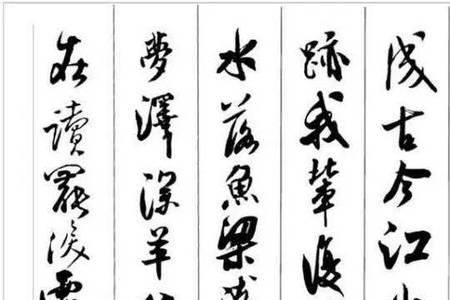 成古今江
跡我輩復
水落魚梁
夢澤深羊
在讀罷淚